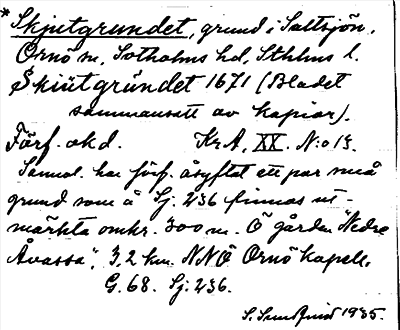 * Skjutgrundet, grund i Saltsjön,
Ornö sn, Sotholms hd, Sthlms l.
Skiütgründet 1671 (Bladet
sammansatt av kopior).
Förf. okd. Kr.A, XX. N:o 13.
Sannol. har förf. åsyftat ett par små
grund som å Sj. 236 finnas ut-
märkta omkr. 300 m. Ö gården "Nedre
Åvassa", 3,2 km. NNÖ Ornö kapell.
G. 68. Sj. 236.
S. Sundquist 1935.